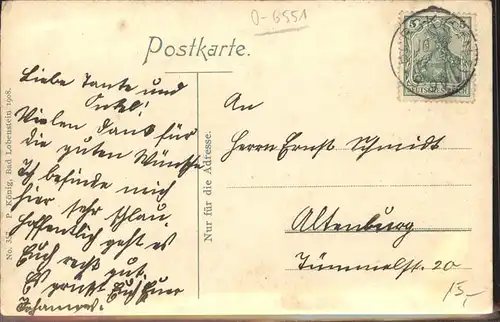 O-6551
Postkarte.
Liebe Tante und
Onkel!
Vielen Dank für
die guten Wünsche
Ich befinde mich
hier sehr schlau.
Hoffentlich geht es
Euch recht gut.
Es grüßt Euch Euer
Johannes.
No. 357 P. König, Bad Lobenstein 1908.
Nur für die Adresse.
5
An
Herrn Ernst Schmidt
Altenburg
Tümmelst. 20
15,-